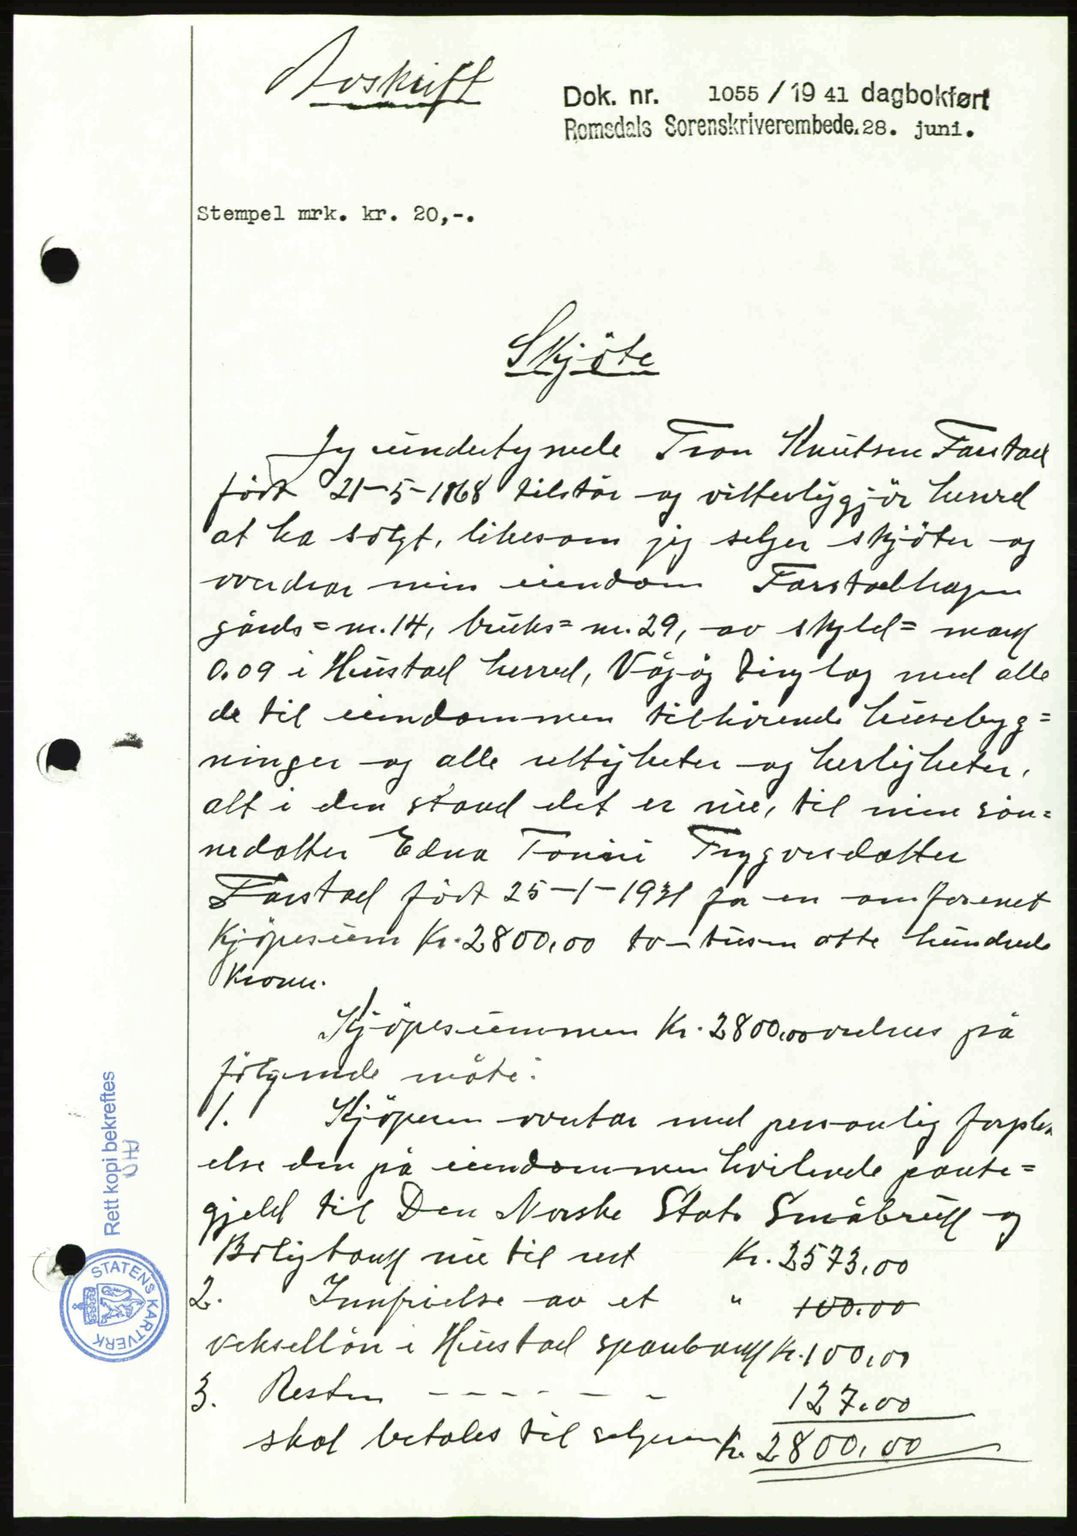 Avskrift
Dok. nr. 1055 / 19 41 dagbokført
Romsdals Sorenskriverembede. 28. juni.
Stempel mrk. kr. 20,-.
Skjöte
Jeg undertegnede Tron Knutsen Farstad
födt 21-5-1868 tilstår og vitterliggjör herved
at ha solgt, likesom jeg selger skjöter og
overdrar min eiendom Farstadhagen
gårds= nr. 14, bruks= nr. 29, av skyld= mark
0.09 i Hustad herred, Vågöy tinglag med alle
de til eiendommen tilhörende husebyg=
ninger og alle rettigheter og herligheter,
alt i den stand det er nu, til min sön=
nedatter Edna Tomine Trygvesdatter
Farstad födt 25-1-1931 for en omforenet
Kjöpesum Kr. 2800,00 to-tusen otte hundrede
Kroner.
Kjöpesummen Kr. 2800,00 ordnes på
fölgende måte:
1. Kjöperen overtar med personlig forplikt
else den på eiendommen hvilende pante=
gjeld til Den Norske Stats Småbruk og
Boligbank nu til rest Kr. 2573,00
2. Innfrielse av et " 100.00
veksellån i Hustad sparebank Kr. 100,00
3. Resten - - - - - - - 127.00
skal betales til selgeren Kr. 2800,00
Rett kopi bekreftes
STATENS KARTVERK